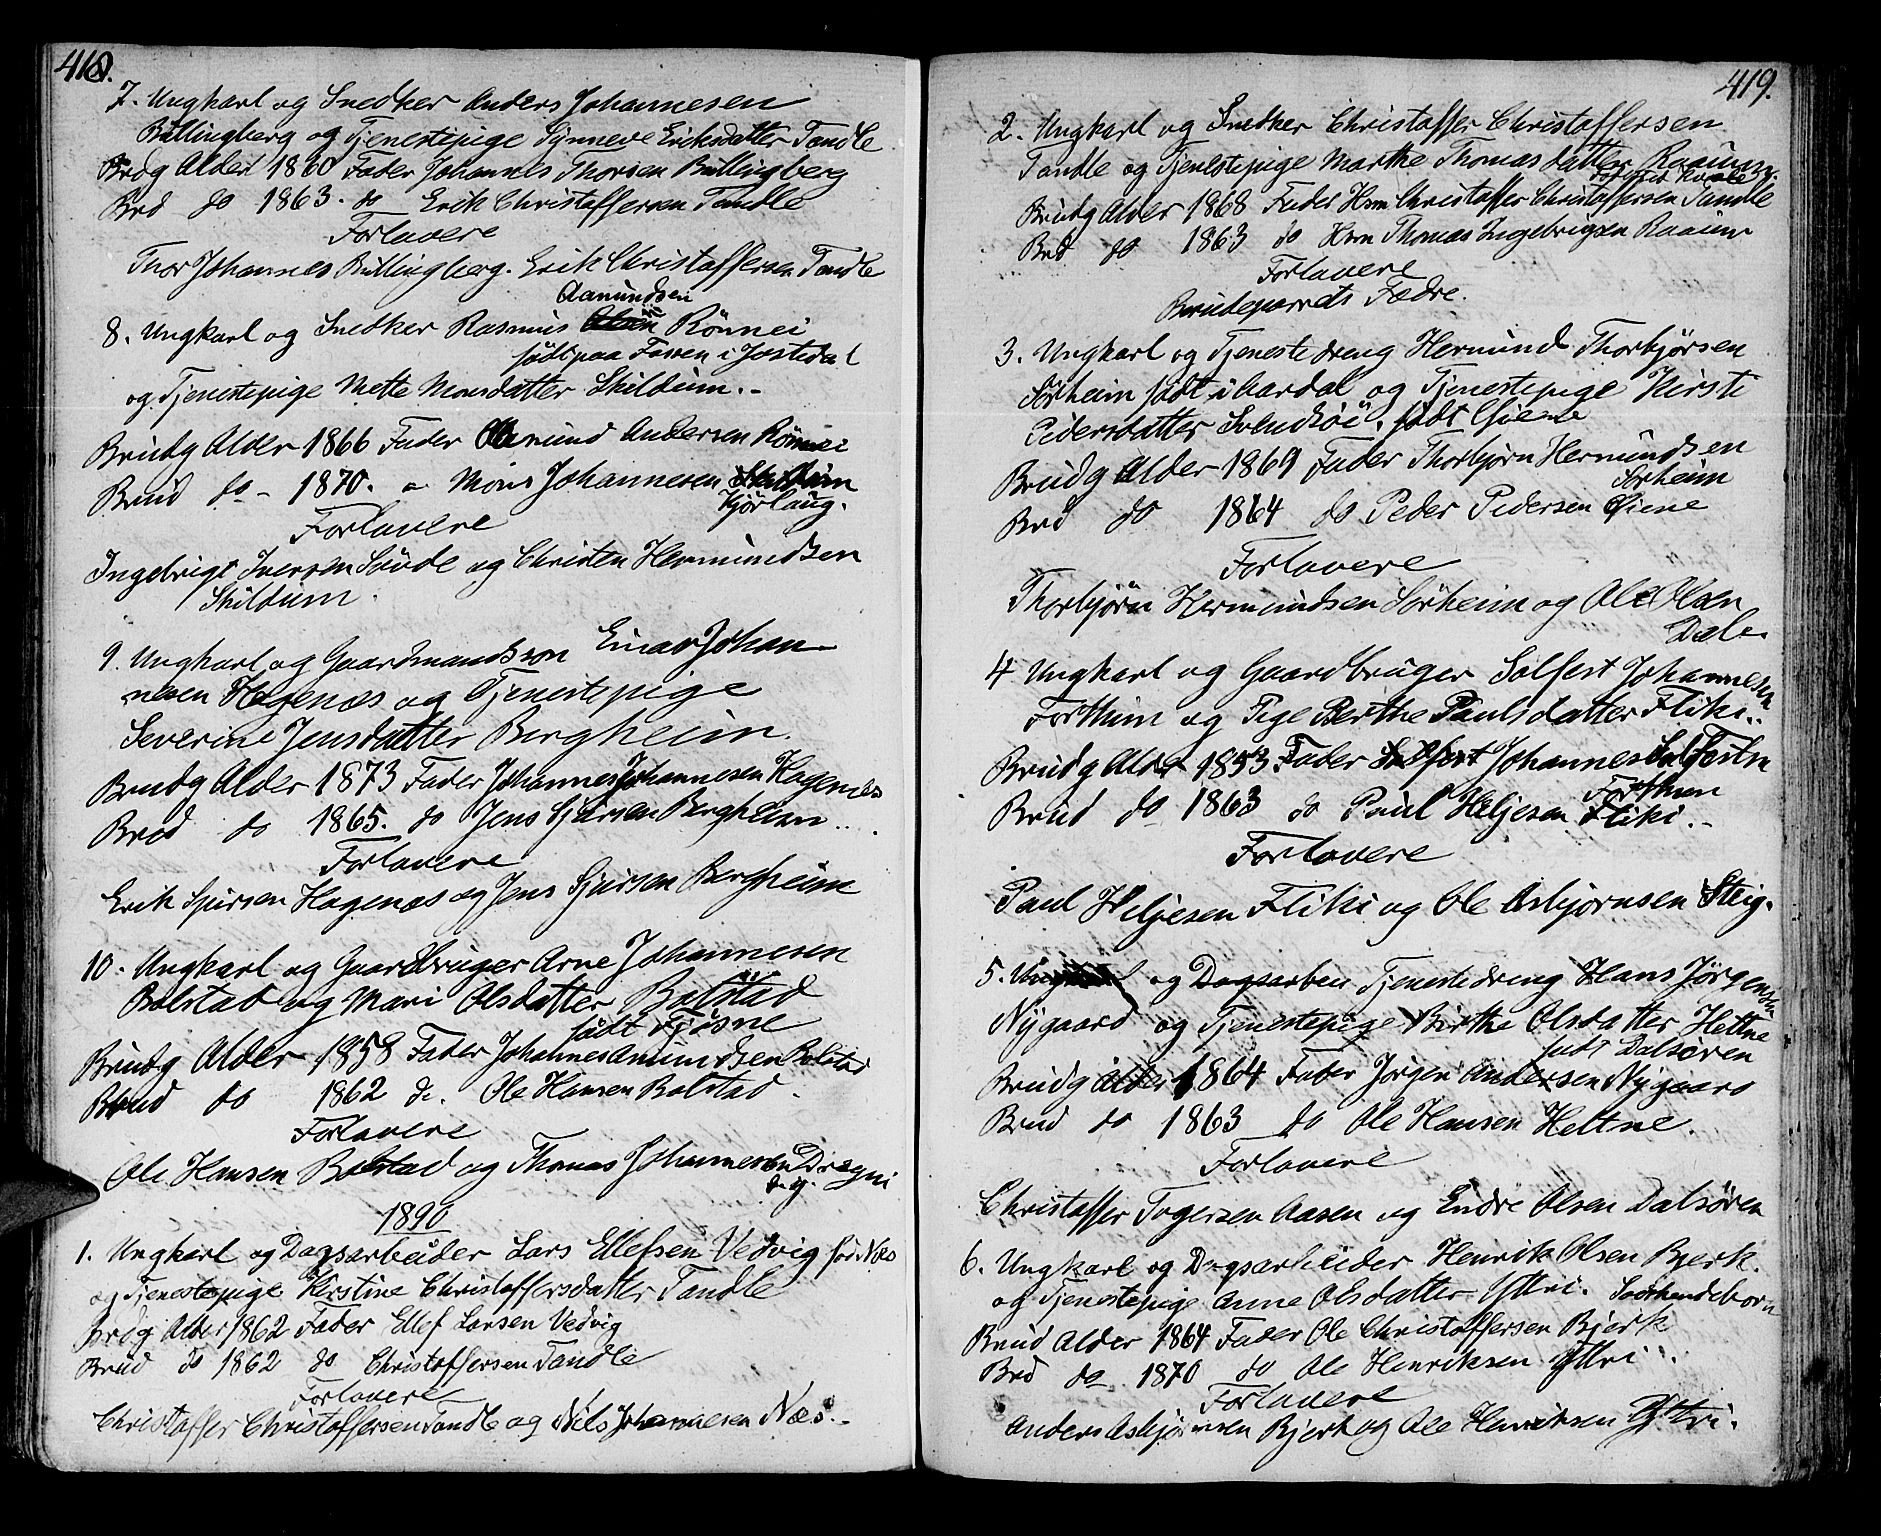 418.
7. Ungkarl og Snedker Anders Johannesen
Bullingberg og Tjenestepige Synneve Eriksdatter Tandle
Brdg Alder 1860 Fader Johannes Thorsen Bullingberg
Brd do 1863. do Erik Christaffersen Tandle
Forlovere
Thor Johannes Bullingberg. Erik Christaffersen Tandle
Aamundsen
8. Ungkarl og Snedker Rasmus Olsen Rönnei
födt paa Fossen i Jostedal
og Tjenestepige Mette Monsdatter Skildum.
Brudg Alder 1866 Fader Aamund Andersen Rönnei
Brud do 1870. " Mons Johannesen Skildum
Kjörlaug.
Forlovere
Ingebrigt Iversen Sövde og Christen Hermundsen
Skildum.
9. Ungkarl og Gaardmandssön Einar Johan-
nesen Hagenæs og Tjenestepige
Severine Jensdatter Bergheim.
Brudg Alder 1873 Fader Johannes Johannesen Hagenæs
Brud do 1865. do Jens Sjursen Bergheim
Forlovere
Erik Sjursen Hagenæs og Jens Sjursen Bergheim
10. Ungkarl og Gaardbruger Arne Johannesen
Bolstad og Mari Olsdatter Bolstad
födt Fjøsne
Brudg Alder 1858 Fader Johannes Amundsen Bolstad
Brud do 1862 do. Ole Hansen Bolstad
Forlovere
Ole Hansen Bolstad og Thomas Johannesen Dregni
1890
1. Ungkarl og Dagsarbeider Lars Ellefsen Vedvig for Næs
og Tjenestepige Kerstine Christaffersdatter Tandle
Brdg Alder 1862 Fader Ellef Larsen Vedvig
Brud do 1862 do Christaffersen Tandle
Forlovere
Christaffer Christaffersen Tandle og Nils Johannesen Næs.
419.
2. Ungkarl og Snedker Christaffer Christaffersen
Tandle og Tjenestepige Marthe Thomasdatter Raaum
Brudg Alder 1868 Fader Hm Christaffer Christaffersen Tandle
Brd do 1863 do Hm Thomas Ingebrigtsen Raaum
Forlovere
Brudeparrets Fædre.
3. Ungkarl og Tjenestedreng Hermund Thorbjörsen
Sörheim födt i Aardal og Tjenestepige Kirsti
Pedersdatter Svendsöi. födt Øiene
Brudg Alder 1869 Fader Thorbjörn Hermundsen
Sørheim
Brd do 1864 do Peder Pedersen Øiene
Forlovere
Thorbjörn Hermundsen Sörheim og Ole Olsen
Dale.
4 Ungkarl og Gaardbruger Solfest Johannesen
Forthun og Pige Berthe Paulsdatter Fliki.
Brudg Alder 1853 Fader Johannes Solfestsn
Forthun
Brud do 1863 do Paul Heljesen Fliki.
Forlovere
Paul Heljesen Fliki og Ole Asbjörnsen Steig.
5. Ungkarl og Dagsarben Tjenestedreng Hans Jörgensen
Nygaard og Tjenestepige Birthe Olsdatter Heltne
født Dalsøren
Brudg Alder 1864 Fader Jörgen Andersen Nygaard
Brud do 1863 do Ole Hansen Heltne.
Forlovere
Christaffer Togersen Aasen og Endre Olsen Dalsören
6. Ungkarl og Dagsarbeider Henrik Olsen Bjerk.
og Tjenestepige Anne Olsdatter Yttri. Södskendebörn
Brud Alder 1864 Fader Ole Christaffersen Bjerk
Brd do 1870 do Ole Henriksen Yttri
Forlovere
Anders Asbjörnsen Bjerk og Ole Henriksen Yttri.